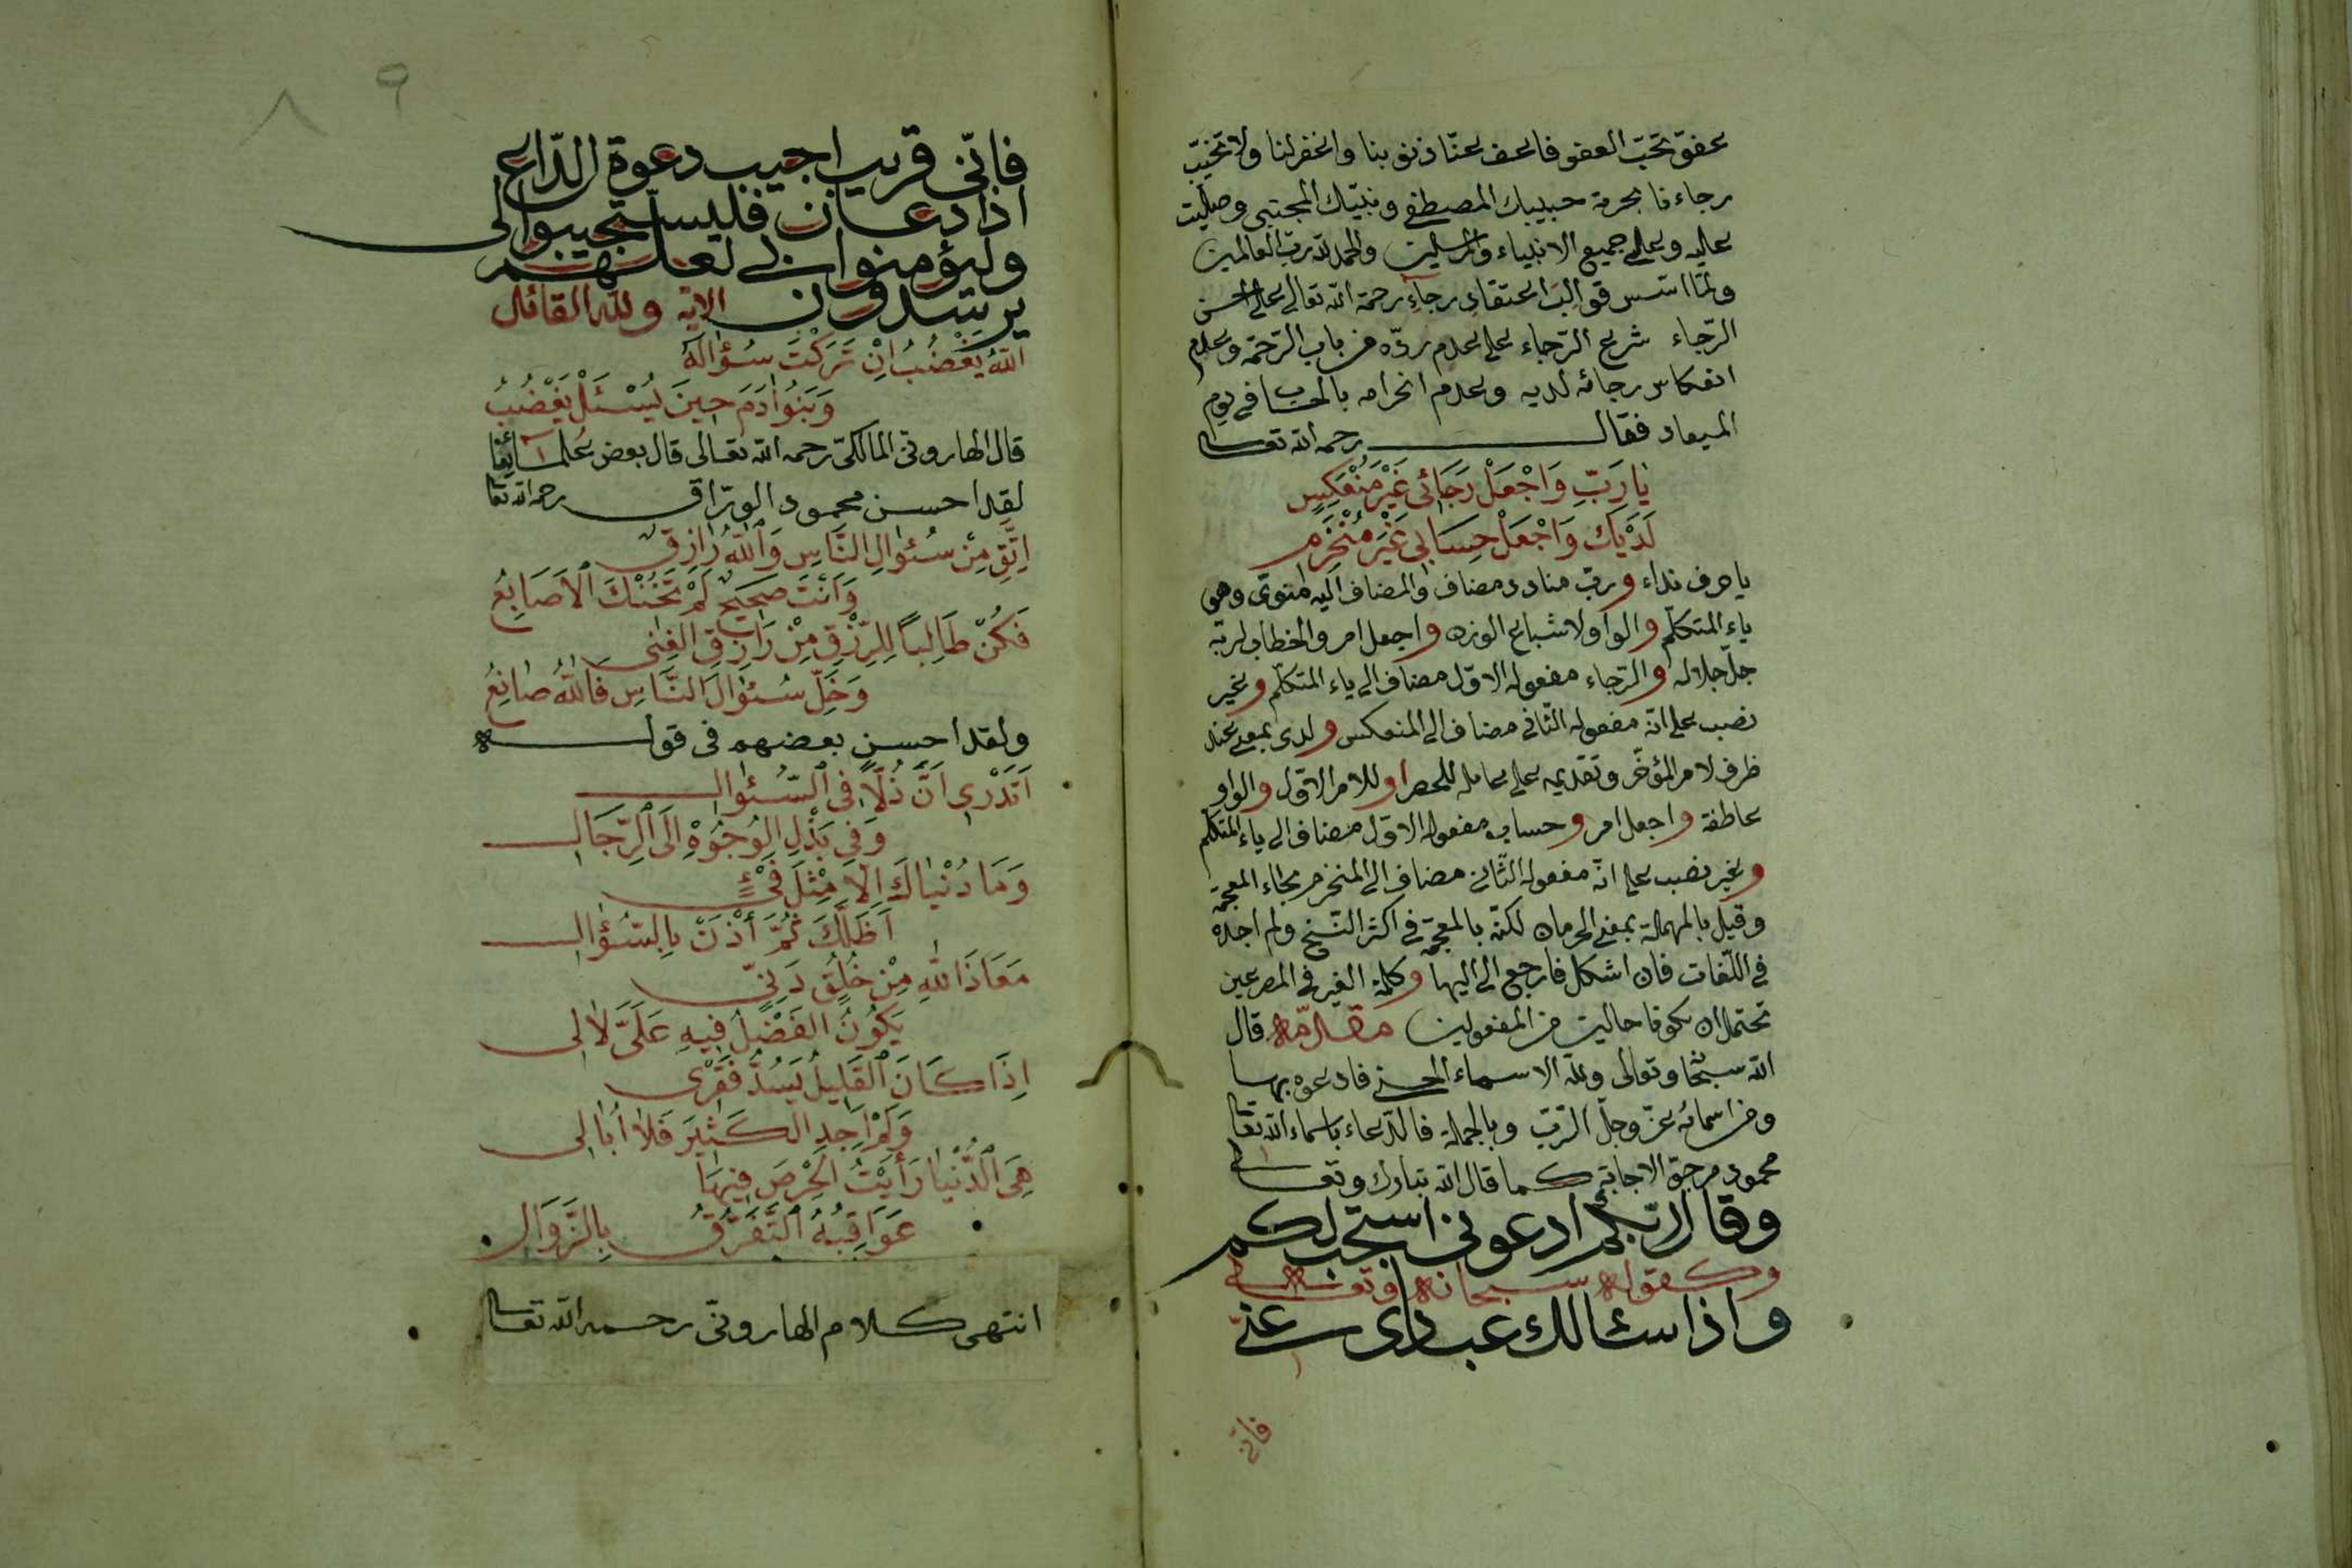 عفوّ تحبّ العفو فاعف عنّا ذنوبنا واغفرلنا ولا تخيّب
رجاءنا بحرمة حبيبك المصطفى ونبيّك المجتبى وصلّيت
عليه وعلى جميع الانبياء والمرسلين والحمد لله ربّ العالمين
ولمّا اسّس قوالب اعتقاد رجاء رحمة الله تعالى على حسن
الرّجاء شرع الرّجاء على عدم ردّه من باب الرّحمة وعدم
انعكاس رجائه لديه وعدم انخرامه بالحساب في يوم
الميعاد فقال رحمه الله تعالى
يَا رَبِّ وَاجْعَلْ رَجَائِي غَيْرَ مُنْعَكِسٍ
لَدَيْكَ وَاجْعَلْ حِسَابِي غَيْرَ مُنْخَرِمِ
يا حرف نداء وربّ منادى مضاف والمضاف اليه منوىّ وهو
ياء المتكلّم والواو لاشباع الوزن واجعل امر والخطاب لربّه
جلّ جلاله والرّجاء مفعوله الاوّل مضاف الى ياء المتكلّم وغير
نصب على انّه مفعوله الثّاني مضاف الى المنعكس ولدى بمعنى عند
ظرف لامر المؤخّر وتقديمه على عامله للحصر او للامر الاوّل والواو
عاطفة واجعل امر وحساب مفعوله الاوّل مضاف الى ياء المتكلّم
وغير نصب على انّه مفعوله الثّاني مضاف الى المنخرم بخاء المعجمة
وقيل بالمهملة بمعنى الحرمان لكنّه بالمعجمة في اكثر النّسخ ولم اجده
في اللّغات فان اشكل فارجع الى اليها وكلمة الغير في المصرعين
تحتمل ان تكونا حالين من المفعولين مقدّمة قال
الله سبحانه وتعالى ولله الاسماء الحسنى فادعوه بها
ومن اسمائه عزّ وجلّ الرّبّ وبالجملة فالدّعاء باسماء الله تعالى
محمود مرجوّ الاجابة كما قال الله تبارك وتعالى
وقال ربّكم ادعوني استجب لكم
وكقوله سبحانه وتعالى
واذا سئالك عبادى عنّى
فانّى
٨٩
فانّى قريب اجيب دعوة الدّاع
اذا دعان فليستجيبوا لى
وليؤمنوا بى لعلّهم
يرشدون الاية ولله القائل
اَللّهُ يَغْضَبُ اِنْ تَرَكْتَ سُؤَالَهُ
وَبَنُو آدَمَ حِينَ يُسْئَلُ يَغْضَبُ
قال الهارونى المالكىّ رحمه الله تعالى قال بعض علمائنا
لقد احسن محمود الورّاق رحمه الله تعا
اِتَّقِ مِنْ سُئوَالِ النَّاسِ وَاللّهُ رَازِقٌ
وَاَنْتَ صَحِيحٌ لَمْ تَخُنْكَ الْاَصَابِعُ
فَكُنْ طَالِبًا لِلرِّزْقِ مِنْ رَازِقِ الْغِنَى
وَخَلِّ سُئوَالَ النَّاسِ فَاللّهُ صَانِعُ
ولقد احسن بعضهم في قوله
اَتَدْرِى اَنَّ ذُلًّا فِى السُّئوَالِ
وَفِى بَذْلِ الْوُجُوهِ اِلَى الرِّجَالِ
وَمَا دُنْيَاكَ اِلَّا مِثْلَ فَيْءٍ
اَظَلَّكَ ثُمَّ أَذَنَ بِالسُّؤَالِ
مَعَاذَ اللّهِ مِنْ خُلُقٍ دَنِىٍّ
يَكُونُ الْفَضْلُ فِيهِ عَلَىَّ لَا لِى
اِذَا كَانَ الْقَلِيلُ يَسُدُّ فَقْرِى
وَلَمْ اَجِدِ الْكَثِيرَ فَلَا اُبَالِى
هِىَ الدُّنْيَا رَأَيْتُ الْحِرْصَ فِيهَا
عَوَاقِبُهُ التَّفَرُّقُ بِالزَّوَالِ
انتهى كلام الهارونىّ رحمه الله تعالى